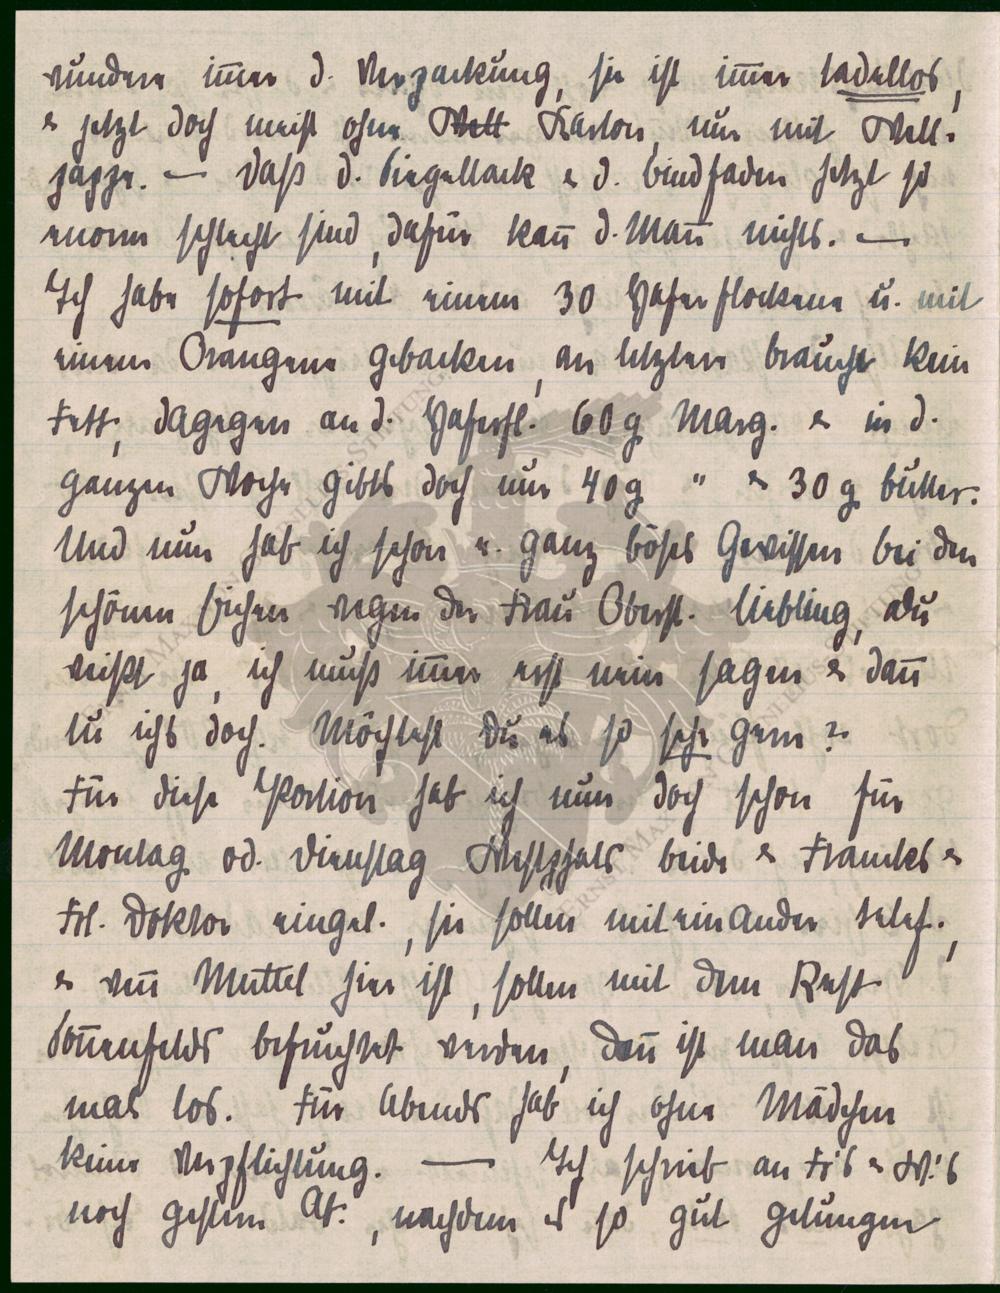 wundere im̅er d. Verpackung, sie ist im̅er tadellos,
& jetzt doch meist ohne Well Karton, nur mit Well-
pappe. — Daß d. Siegellack & d. Bindfaden jetzt so
enorm schlecht sind, dafür kan̅ d. Man̅ nichts. —
Ich habe sofort mit einem 30 Haferflockene u. mit
einem Orangene gebacken, an letztere braucht kein
Fett, dagegen an d. Haferfl. 60 g Marg. & in d.
ganzen Woche gibts doch nur 40 g " & 30 g Butter.
Und nun hab ich schon e. ganz böses Gewissen bei den
schönen Eichen wegen der Frau Oberst. Liebling, du
weißt ja, ich muß im̅er erst nein sagen & dan̅
tu ichs doch. Möchtest Du es so sehr gern?
Für diese Portion hab ich nun doch schon für
Montag od. Dienstag Westphals beide & Francks &
Frl. Doktor eingel., sie sollen miteinander telef.,
& wen̅ Muttel hier ist, sollen mit dem Rest
Son̅enfelds befruchtet werden, dan̅ ist man das
mal los. Für Abends hab ich ohne Mädchen
keine Verpflichtung. — Ich schrieb an Fr's & W.'s
noch gestern Ab., nachdem es so gut gelungen
ERNST MAX
STIFTUNG